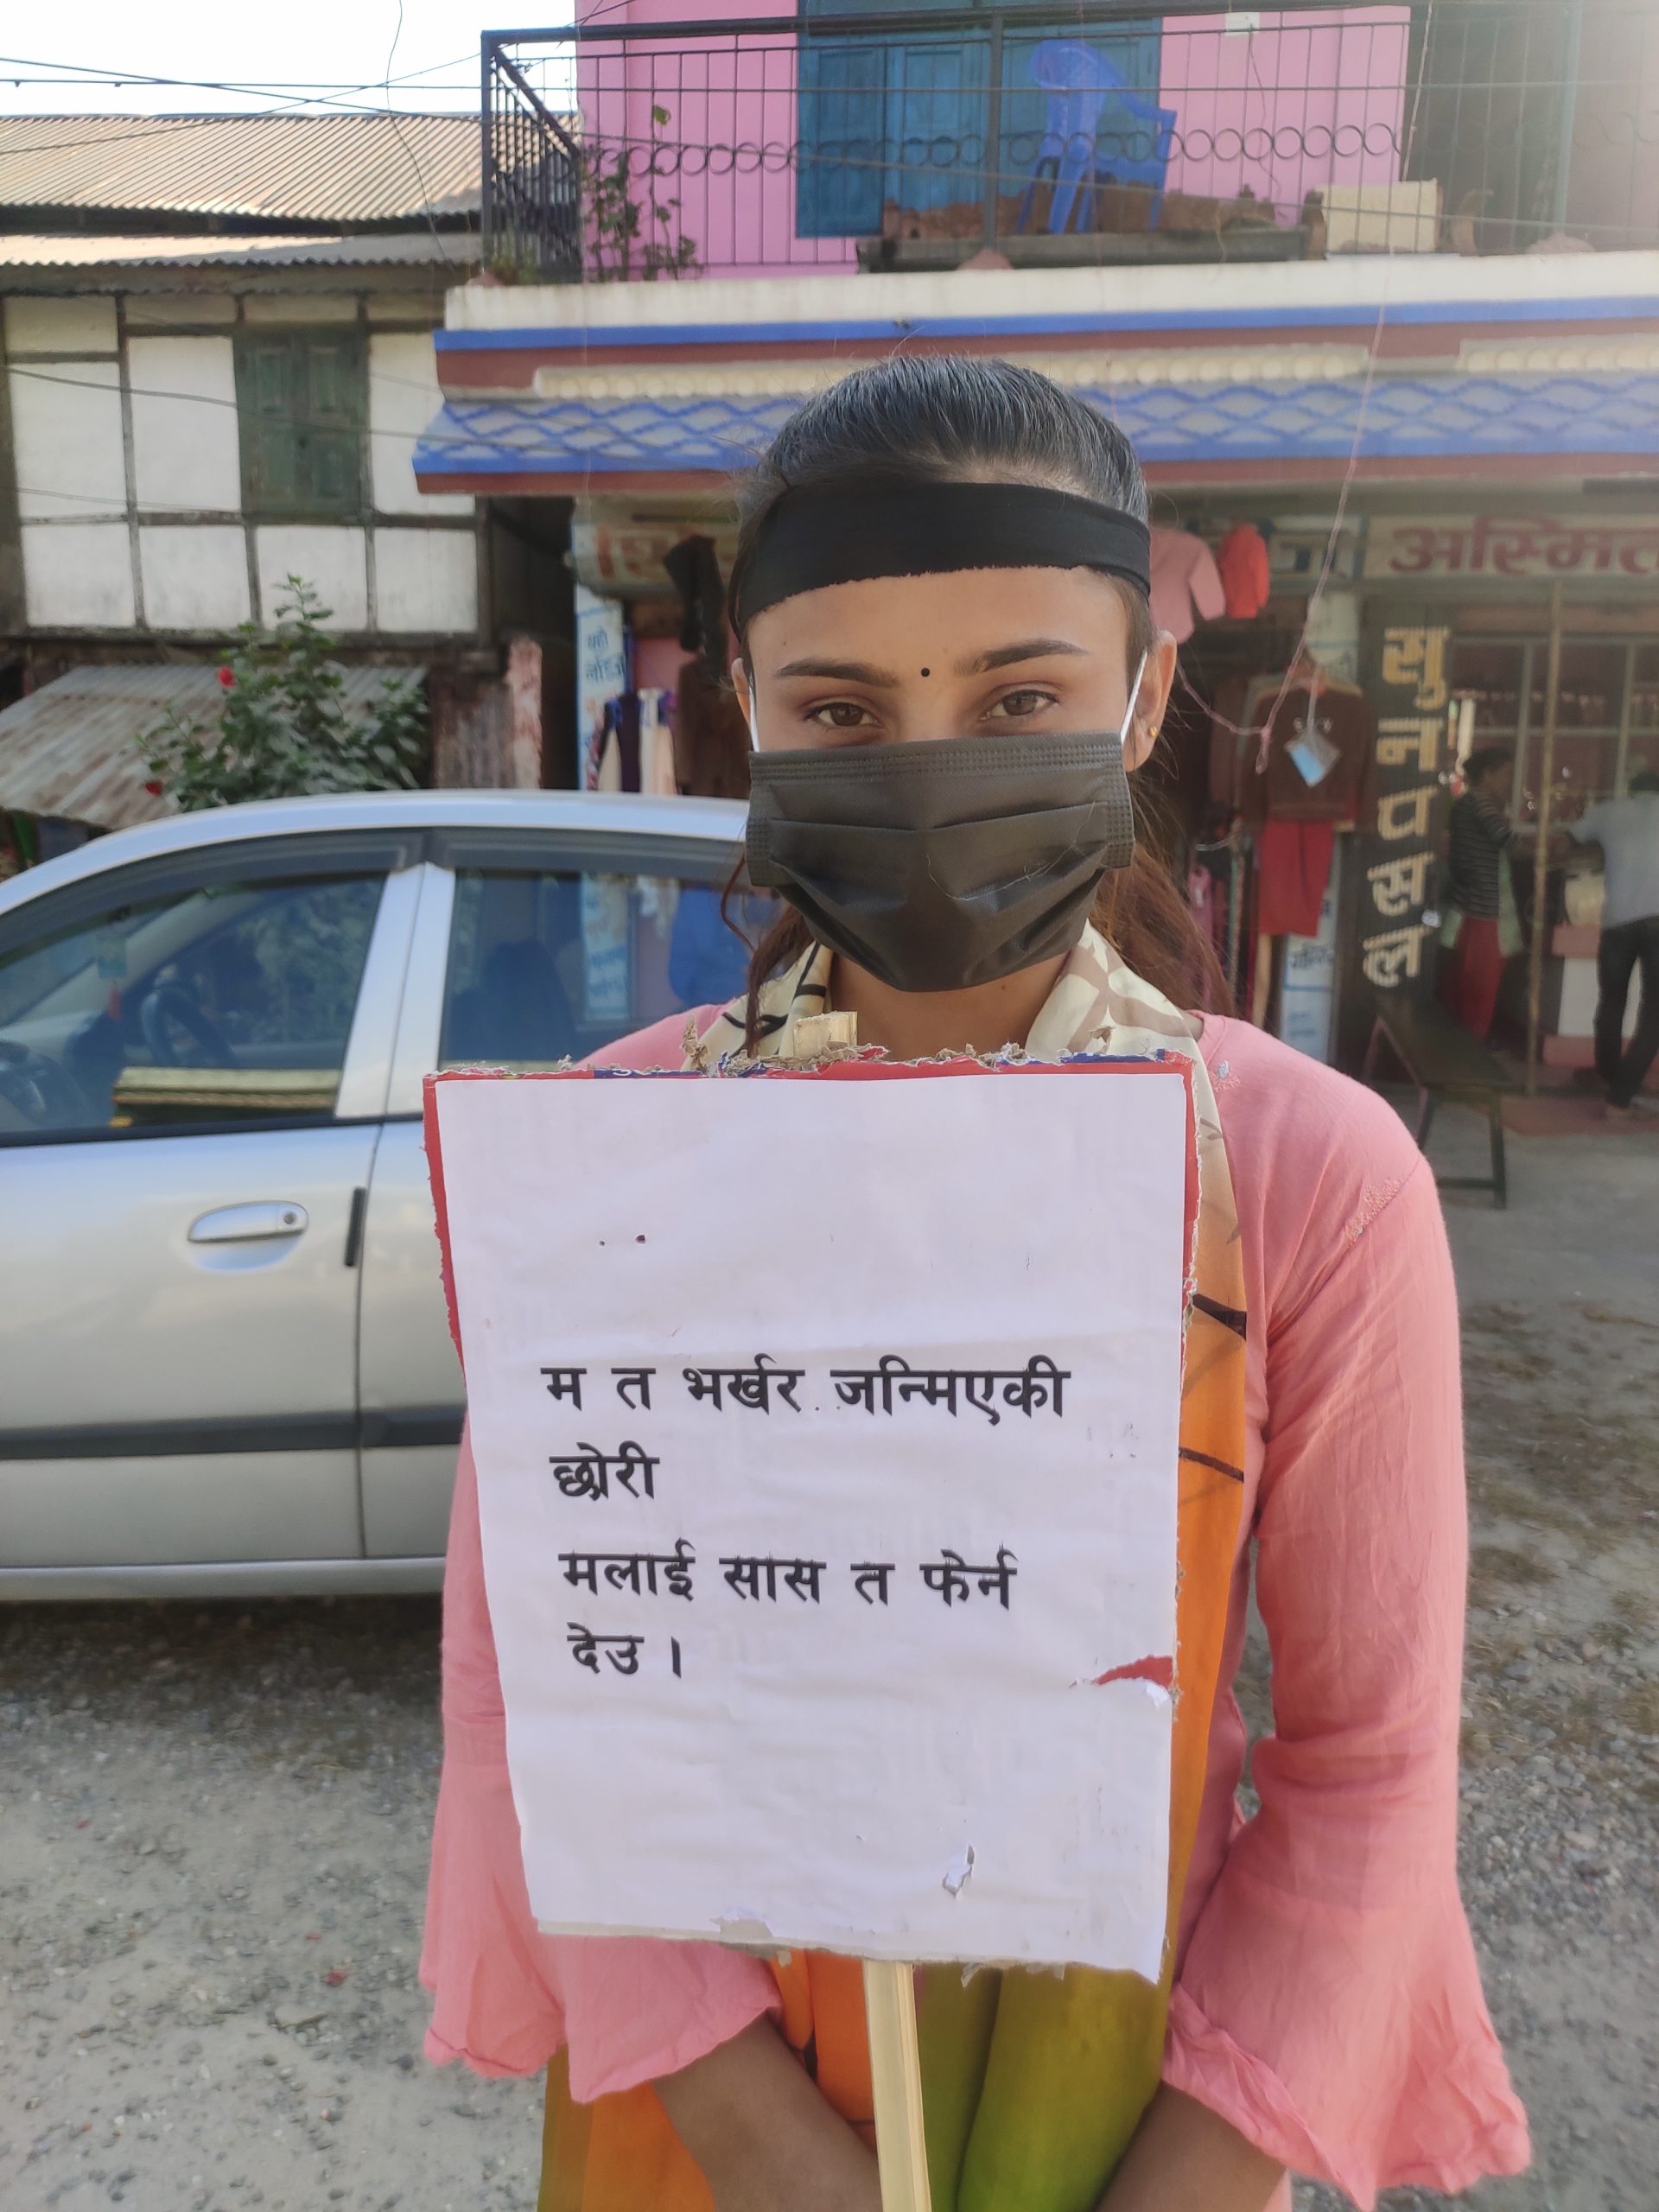 अस्मित
सु
न
प
स
ल
म त भर्खर जन्मिएकी
छोरी
मलाई सास त फेर्न
देउ ।